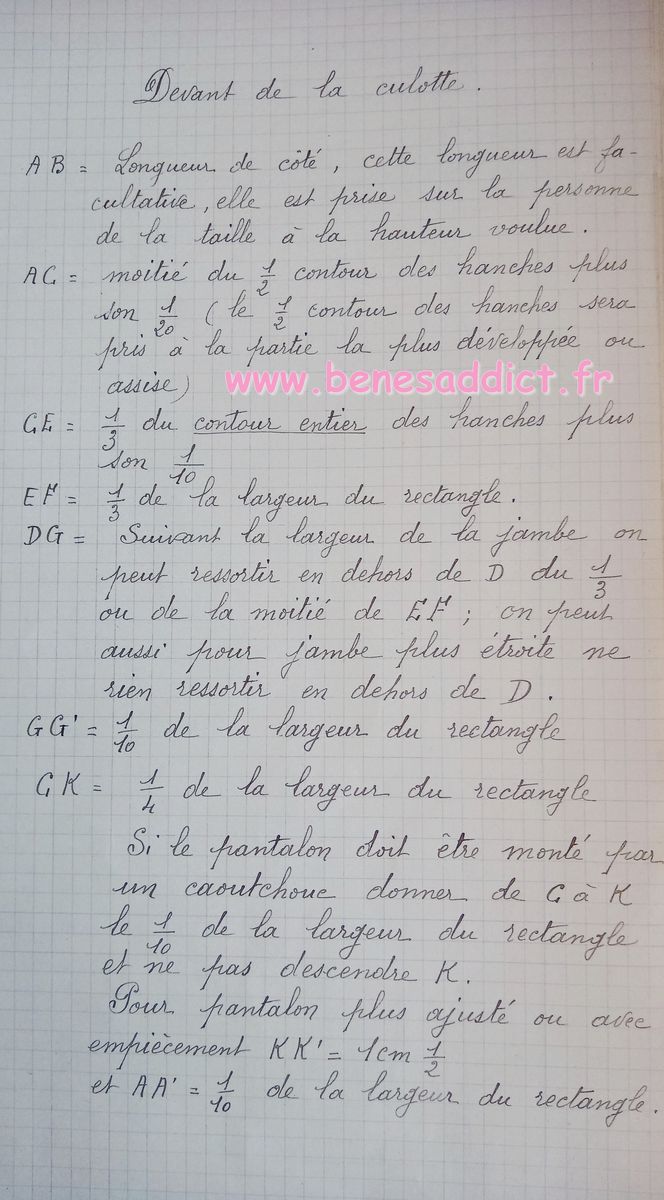 Devant de la culotte.
AB = Longueur de côté, cette longueur est fa-
cultative, elle est prise sur la personne
de la taille à la hauteur voulue.
AC = moitié du 1/2 contour des hanches plus
son 1/20 (le 1/2 contour des hanches sera
pris à la partie la plus développée ou
assise)
www.benesaddict.fr
CE = 1/3 du contour entier des hanches plus
son 1/10
EF = 1/3 de la largeur du rectangle.
DG = Suivant la largeur de la jambe on
peut ressortir en dehors de D du 1/3
ou de la moitié de EF ; on peut
aussi pour jambe plus étroite ne
rien ressortir en dehors de D.
GG' = 1/10 de la largeur du rectangle
CK = 1/4 de la largeur du rectangle
Si le pantalon doit être monté par
un caoutchouc donner de C à K
le 1/10 de la largeur du rectangle
et ne pas descendre K.
Pour pantalon plus ajusté ou avec
empiècement KK' = 1cm 1/2
et AA' = 1/10 de la largeur du rectangle.